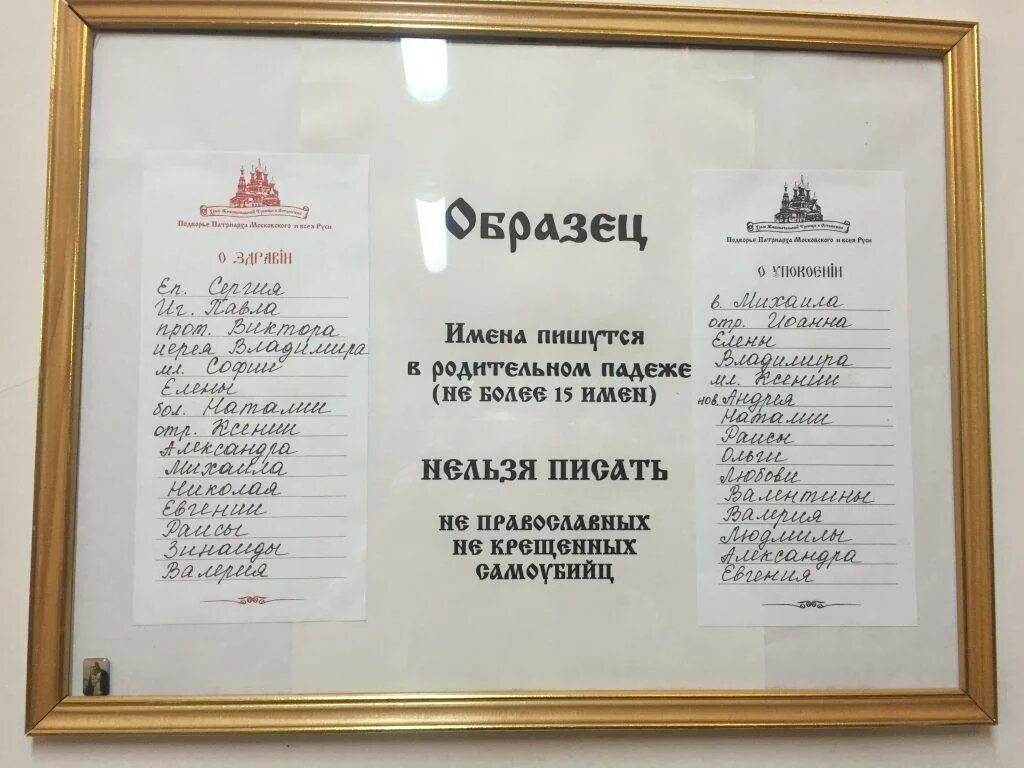 Храм Живоначальной Троицы в Останкино
Подворье Патриарха Московского и всея Руси
О ЗДРАВІИ
Еп. Сергия
Иг. Павла
прот. Виктора
иерея Владимира
мл. Софии
Елены
бол. Наталии
отр. Ксении
Александра
Михаила
Николая
Евгении
Раисы
Зинаиды
Валерия
Образец
Имена пишутся
в родительном падеже
(не более 15 имен)
НЕЛЬЗЯ ПИСАТЬ
НЕ ПРАВОСЛАВНЫХ
НЕ КРЕЩЕННЫХ
САМОУБИЙЦ
Храм Живоначальной Троицы в Останкино
Подворье Патриарха Московского и всея Руси
О УПОКОЕНІИ
в. Михаила
отр. Иоанна
Елены
Владимира
мл. Ксении
нов. Андрея
Наталии
Раисы
Ольги
Любови
Валентины
Валерия
Людмилы
Александра
Евгения